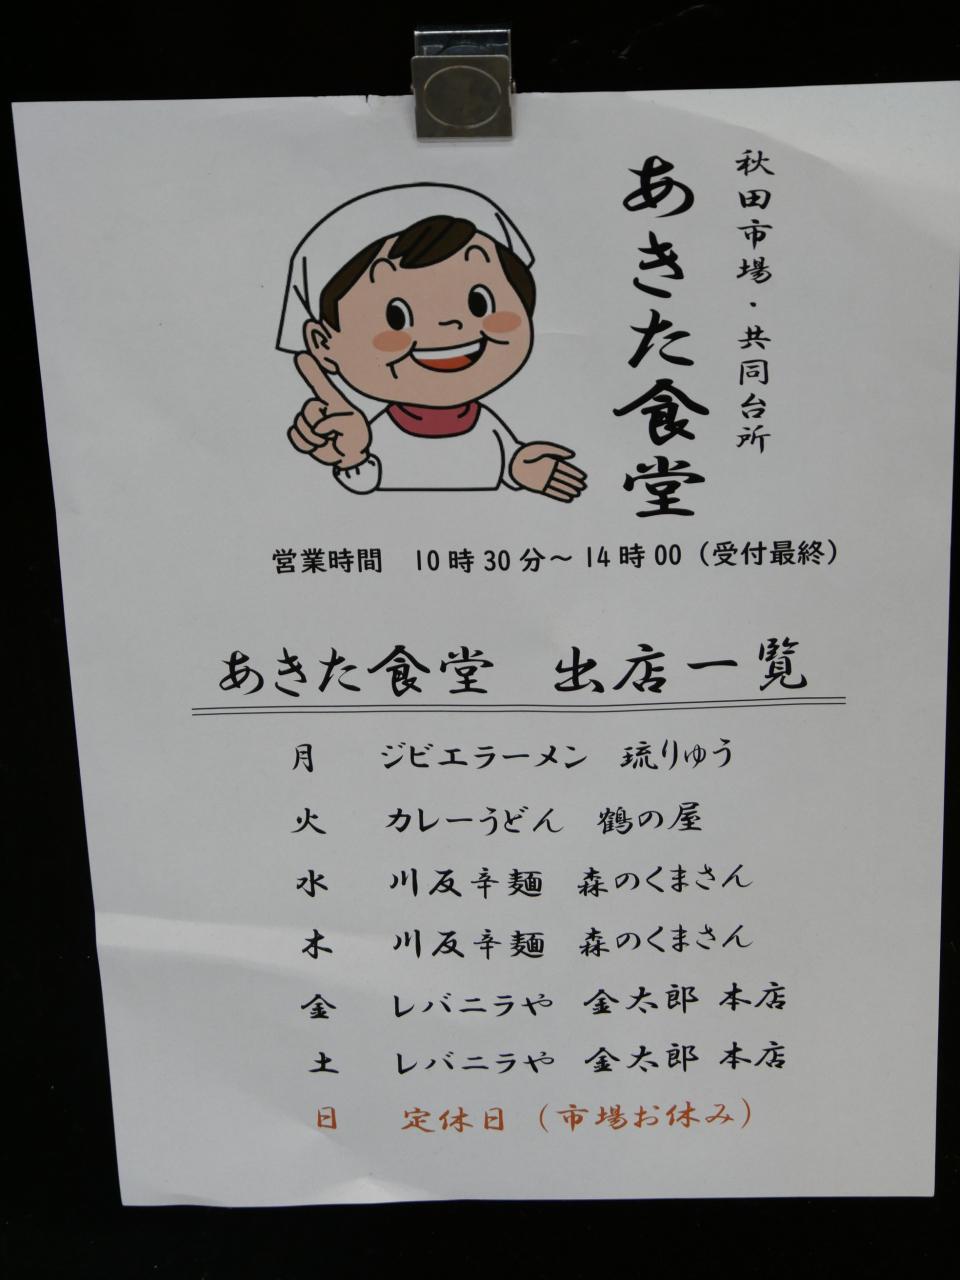 秋田市場・共同台所
あきた食堂
営業時間 10時30分～14時00（受付最終）
あきた食堂 出店一覧
月 ジビエラーメン 琉りゅう
火 カレーうどん 鶴の屋
水 川反辛麺 森のくまさん
木 川反辛麺 森のくまさん
金 レバニラや 金太郎 本店
土 レバニラや 金太郎 本店
日 定休日（市場お休み）